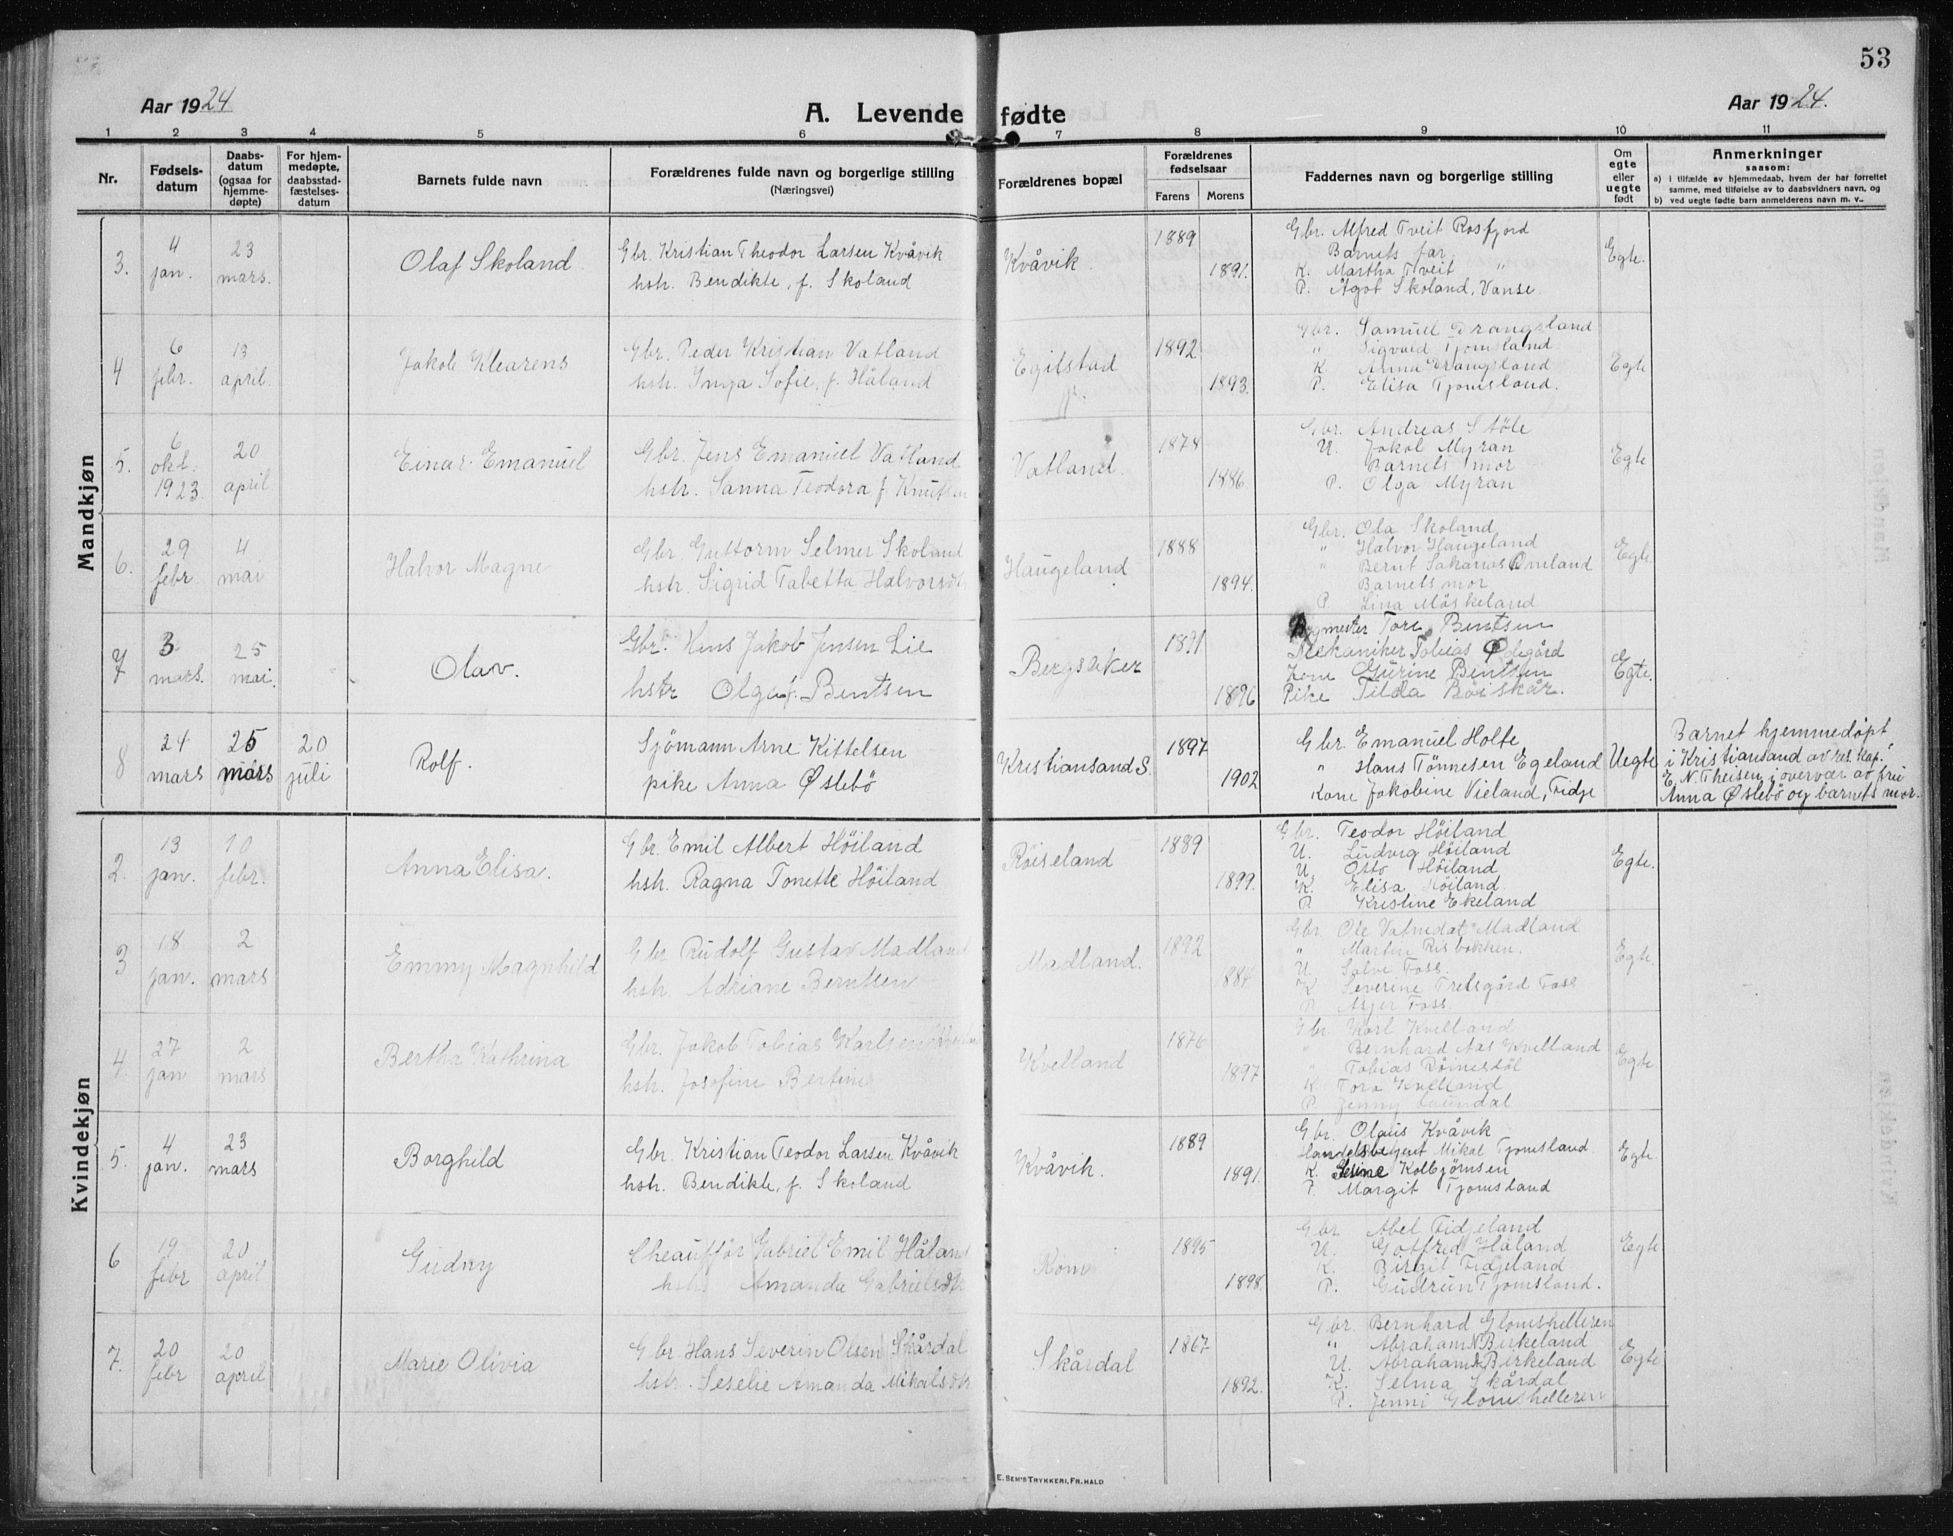 53
Aar 1924
A. Levende fødte
Aar 1924.
1 2 3 4 5 6 7 8 9 10 11
Nr.
Fødsels-
datum
Daabs-
datum
(ogsaa for
hjemme-
døpte)
For hjem-
medøpte,
daabsstad-
fæstelses-
datum
Barnets fulde navn
Forældrenes fulde navn og borgerlige stilling
(Næringsvei)
Forældrenes bopæl
Forældrenes
fødselsaar
Farens Morens
Faddernes navn og borgerlige stilling
Om
egte
eller
uegte
født
Anmerkninger
saasom:
a) i tilfælde av hjemmedaab, hvem der har forrettet
samme, med tilføielse av to daabsvidners navn, og
b) ved uegte fødte barn anmelderens navn m. v.
Mandkjøn
3.
4
jan.
23
mars.
Olaf Skoland
Gbr. Kristian Theodor Larsen Kvåvik
hstr. Bendikte, f. Skoland
Kvåvik.
1889
1891.
Gbr. Alfred Tveit Rosfjord
Barnets far.
K. Martha Tveit "
P. Ågot Skoland, Vanse.
Egte.
4
6
febr.
13
april.
Jakob Klearens
Gbr. Peder Kristian Vatland
hstr. Inga Sofie, f. Håland
Egilstad
1892
1893.
Gbr. Samuel Drangsland
" Sigvald Tjomsland
K. Anna Drangsland
P. Elisa Tjomsland.
Egte
5.
6
okt.
1923.
20
april
Einar Emanuel
Gbr. Jens Emanuel Vatland
hstr. Sanna Teodora f. Knutsen
Vatland.
1878
1886
Gbr. Andreas Støle
U. Jakob Myran
Barnets mor
P. Olga Myran
Egte
6.
29
febr.
4
mai
Halvor Magne
Gbr. Guttorm Selmer Skoland
hstr. Sigrid Tabetta Halvorsdt.
Haugeland
1888
1894.
Gbr. Ola Skoland
" Halvor Haugeland
" Bernt Sakarias Omland
Barnets mor
P. Lina Møskeland
Egte
7
3
mars.
25
mai.
Olav.
Gbr. Hans Jakob Jensen Lie
hstr Olga f. Bentsen
Bergsaker
1891
1896
Bygmester Tore Bentsen
Mekaniker Tobias Ødegård
Kone Gurine Bentsen
Pike Tilda Röiskår.
Egte.
8
24
mars
25
mars
20
juli
Rolf.
Sjömann Arne Kittelsen
pike Anna Øslebö
Kristiansand S.
1897
1902
Gbr. Emanuel Holte
" Hans Tönnesen Egeland
Kone Jakobine Vieland, Fidje
Uegte
Barnet hjemmedöpt
i Kristiansand av res. kap.
E. N. Theisen i overvær av fru
Anna Øslebö og barnets mor.
Kvindekjøn
2.
13
jan.
10
febr.
Anna Elisa.
Gbr. Emil Albert Höiland
hstr. Ragna Tonette Höiland
Röiseland
1889
1899.
Gbr. Teodor Höiland
U. Ludvig Höiland
U. Otto Höiland
K. Elisa Höiland
P. Kristine Ekeland
Egte.
3
18
jan.
2
mars
Emmy Magnhild
Gbr Rudolf Gustav Madland
hstr. Adriane Berntsen
Madland.
1892
1884
Gbr Ole Valnedat Madland
" Martin Risbakken.
U. Salve Foss.
K Severine Tretsgård Foss
P. Asjer Foss
Egte.
4.
27
jan
2
mars
Bertha Kathrina
Gbr. Jakob Tobias Karlsen Kvelland
hstr. Josefine Bertine
Kvelland
1876
1897
Gbr Karl Kvelland
" Bernhard Aas Kvelland
" Tobias Römesdöl
K Tora Kvelland
P. Jenny
Egte.
5.
4
jan.
23
mars
Borghild
Gbr. Kristian Teodor Larsen Kvåvik
hstr. Bendikte, f. Skoland
Kvåvik.
1889
1891.
Gbr. Olaus Kvåvik
Handelsbetjent Mikal Tjomsland
K. Kolbjørnsen
P. Margit Tjomsland
Egte
6
19
febr
20
april
Gudny
Cheauffør Gabriel Emil Håland
hstr. Amanda Gabrielsdtr
Kom
1895
1898.
Gbr Abel Fidjeland
U. Gotfred Håland
K. Birgit Fidjeland
P. Gudrun Tjomsland.
Egte
7.
20
febr
20
april
Marie Olivia
Gbr. Hans Severin Olsen Skårdal
hstr. Seselie Amanda Mikalsdtr
Skårdal
1867.
1892.
Gbr. Bernhard Glomshelleren
" Abraham N Birkeland
U. Abraham A Birkeland
K. Selma Skårdal
P. Jenni Glomshelleren
Egte
E. SEM'S TRYKKERI, FR.HALD